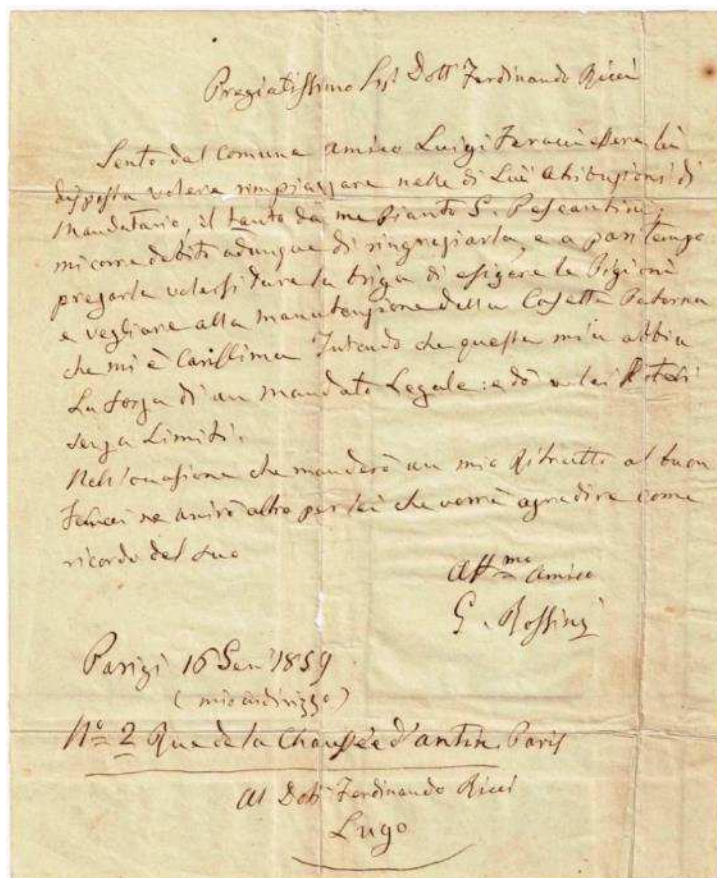 Pregiatissimo Sigr Dottr Ferdinando Ricci
Sento dal Comune amico Luigi Feracci essere lei
disposta volere rimpiazzare nelle di Lui atribuzioni di
Mandatario, il tanto da me pianto S. Pescantini;
mi corre debito adunque di ringraziarla, e a pari tempo
pregarla volersi dare la briga di esigere le Pigioni
e vegliare alla manutenzione della Casetta Paterna
che mi è Carissima Intendo che questa mia abbia
La forza di un Mandato Legale: e do
senza Limiti.
Nell'occasione che manderò un mio Ritratto al buon
ne unirò altro per lei che vorrà agradire come
ricordo del suo
Aff.mo Amico
G. Rossini
Parigi 16 Gen 1859
(mio indirizzo)
No 2 Rue de la Chaussée d'antin Paris
Al Dottr Ferdinando Ricci
Lugo